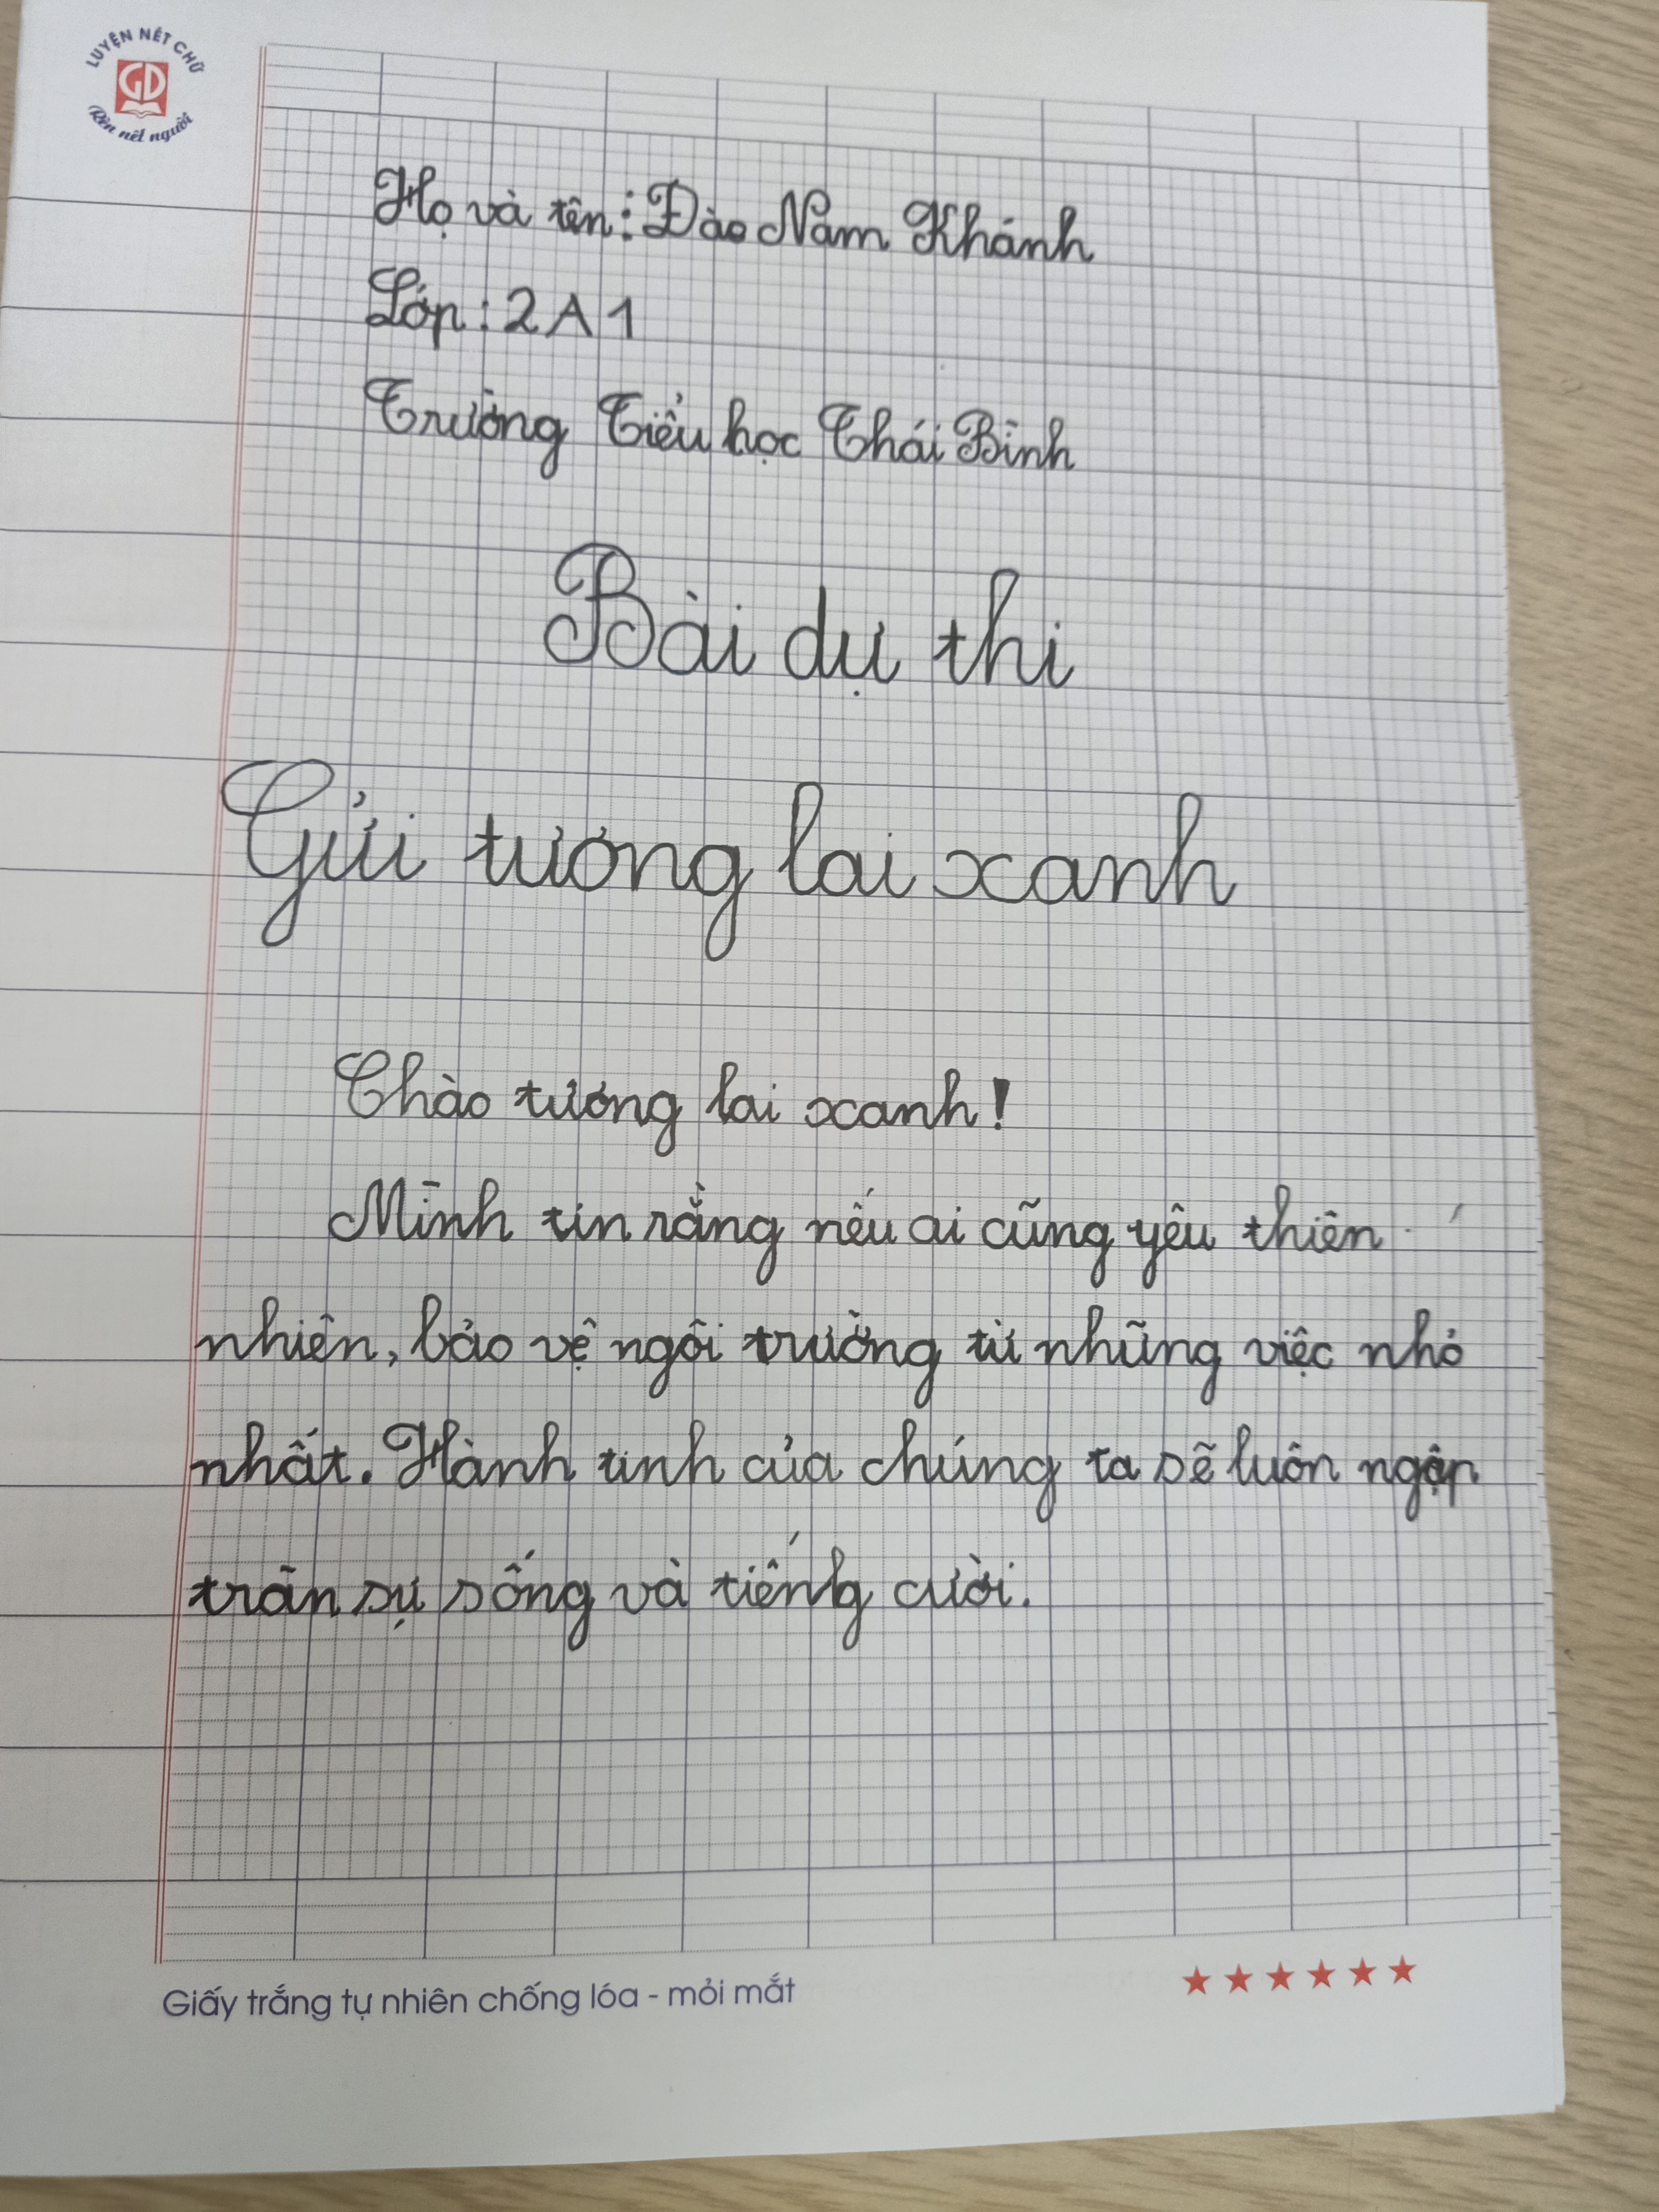 LUYỆN NÉT CHỮ
GD
Rèn nết người
Họ và tên: Đào Nam Khánh
Lớp: 2A1
Trường Tiểu học Thái Bình
Bài dự thi
Gửi tương lai xanh
Chào tương lai xanh!
Mình tin rằng nếu ai cũng yêu thiên
nhiên, bảo vệ ngôi trường từ những việc nhỏ
nhất. Hành tinh của chúng ta sẽ luôn ngập
tràn sự sống và tiếng cười.
Giấy trắng tự nhiên chống lóa - mỏi mắt